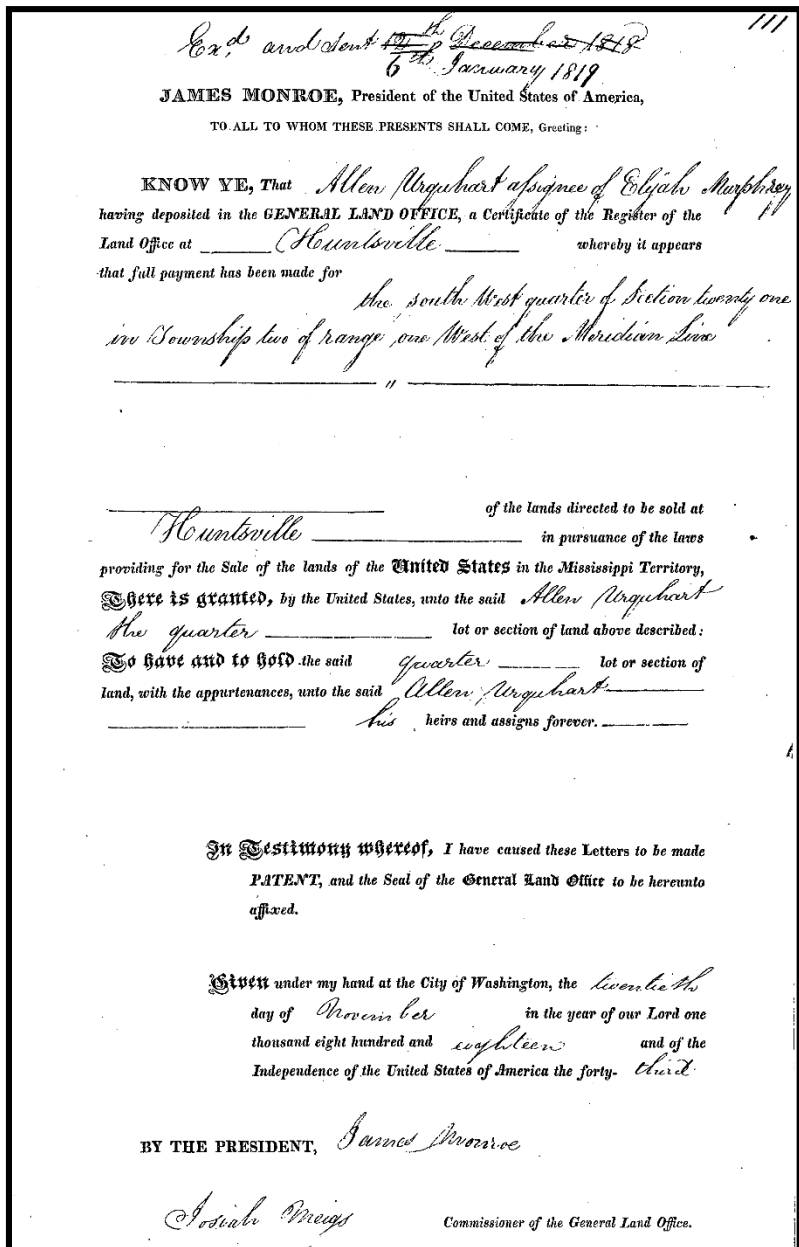 111
Exd. and sent 12th December 1818
6th January 1819
JAMES MONROE, President of the United States of America,
TO ALL TO WHOM THESE PRESENTS SHALL COME, Greeting:
KNOW YE, That Allen Urquhart assignee of Elijah Murphrey
having deposited in the GENERAL LAND OFFICE, a Certificate of the Register of the
Land Office at Huntsville whereby it appears
that full payment has been made for
the south West quarter of Section twenty one
in Township two of range one West of the Meridian Line
"
of the lands directed to be sold at
Huntsville in pursuance of the laws
providing for the Sale of the lands of the United States in the Mississippi Territory,
There is granted, by the United States, unto the said Allen Urquhart
the quarter lot or section of land above described:
To have and to hold the said quarter lot or section of
land, with the appurtenances, unto the said Allen Urquhart
his heirs and assigns forever.
In Testimony whereof, I have caused these Letters to be made
PATENT, and the Seal of the General Land Office to be hereunto
affixed.
Given under my hand at the City of Washington, the twentieth
day of November in the year of our Lord one
thousand eight hundred and eighteen and of the
Independence of the United States of America the forty-third
BY THE PRESIDENT, James Monroe
Josiah Meigs Commissioner of the General Land Office.